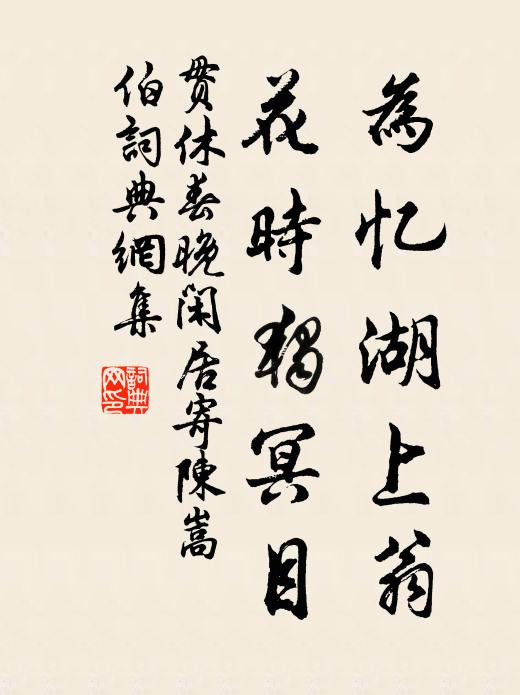 為忆湖上翁
花時獨冥目
贯休春晚閑居寄陳嵩
伯詞典網集
詞典
网印